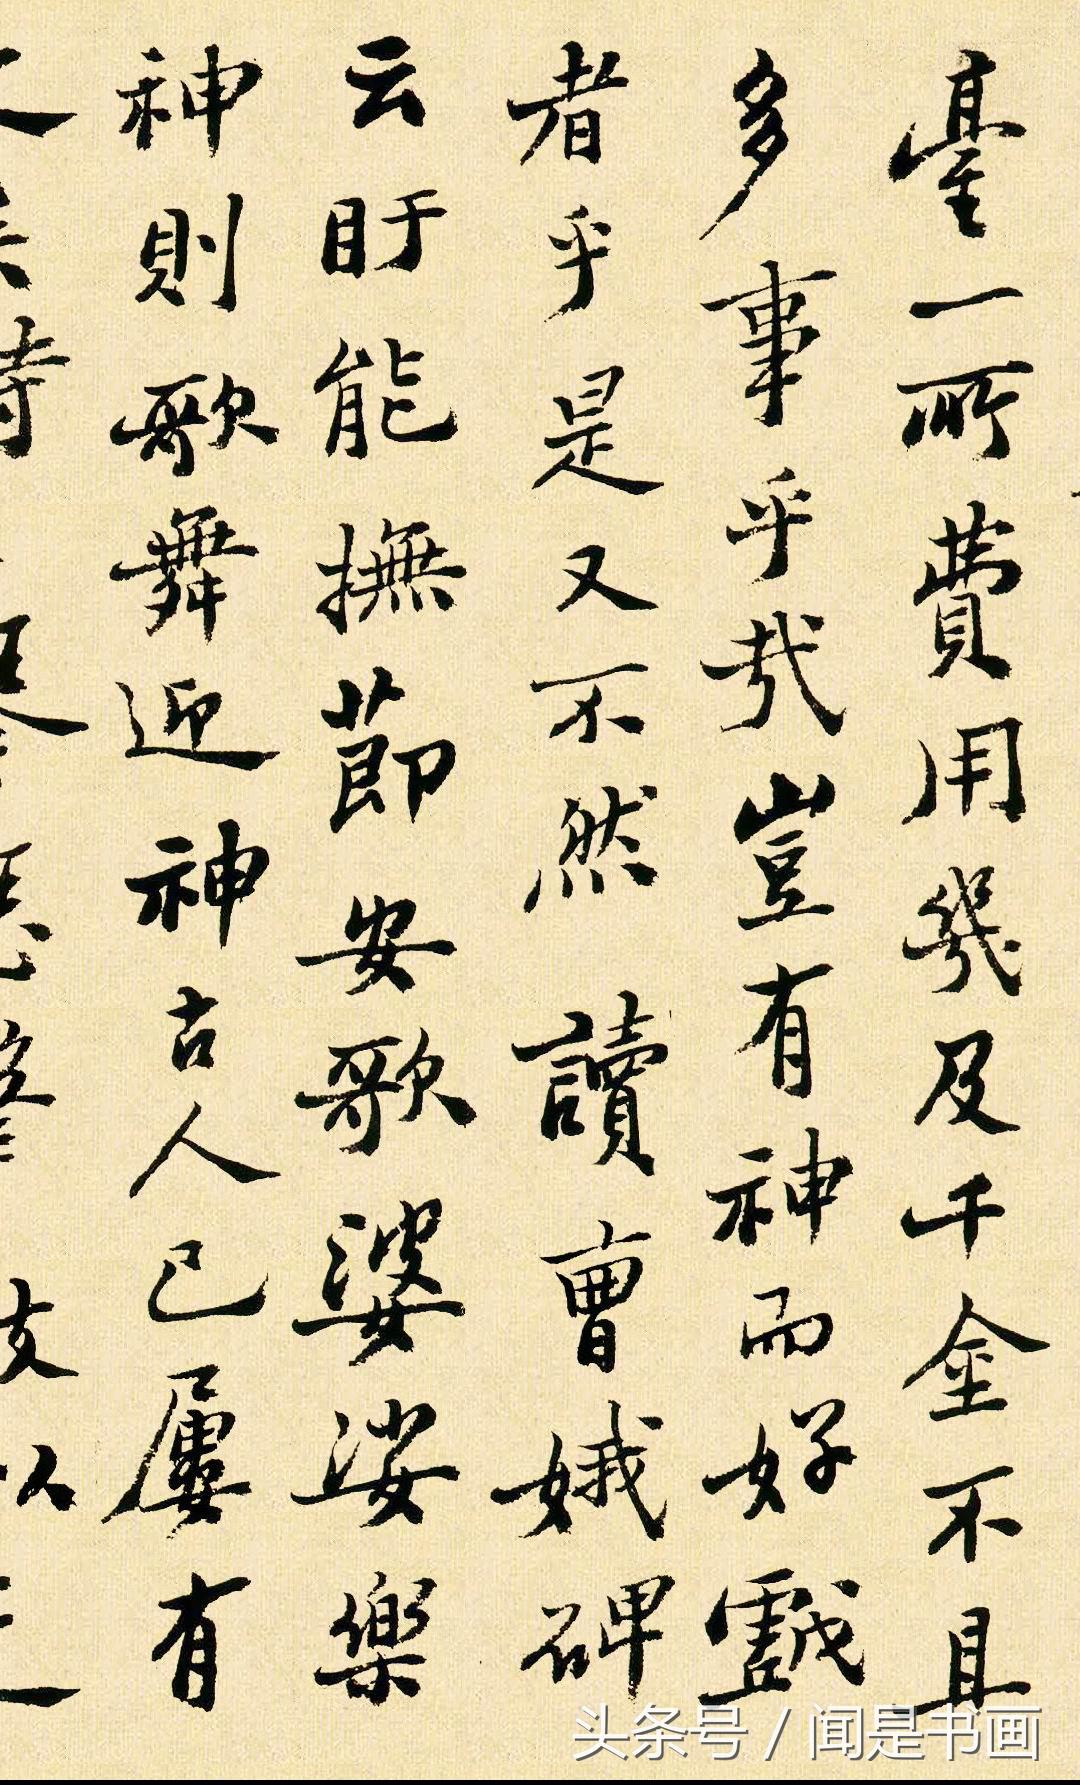 臺一所費用幾及千金不且
多事乎哉豈有神而好戲
者乎是又不然讀曹娥碑
云盱能撫節安歌婆娑樂
神則歌舞迎神古人已屢有
头条号 / 闻是书画